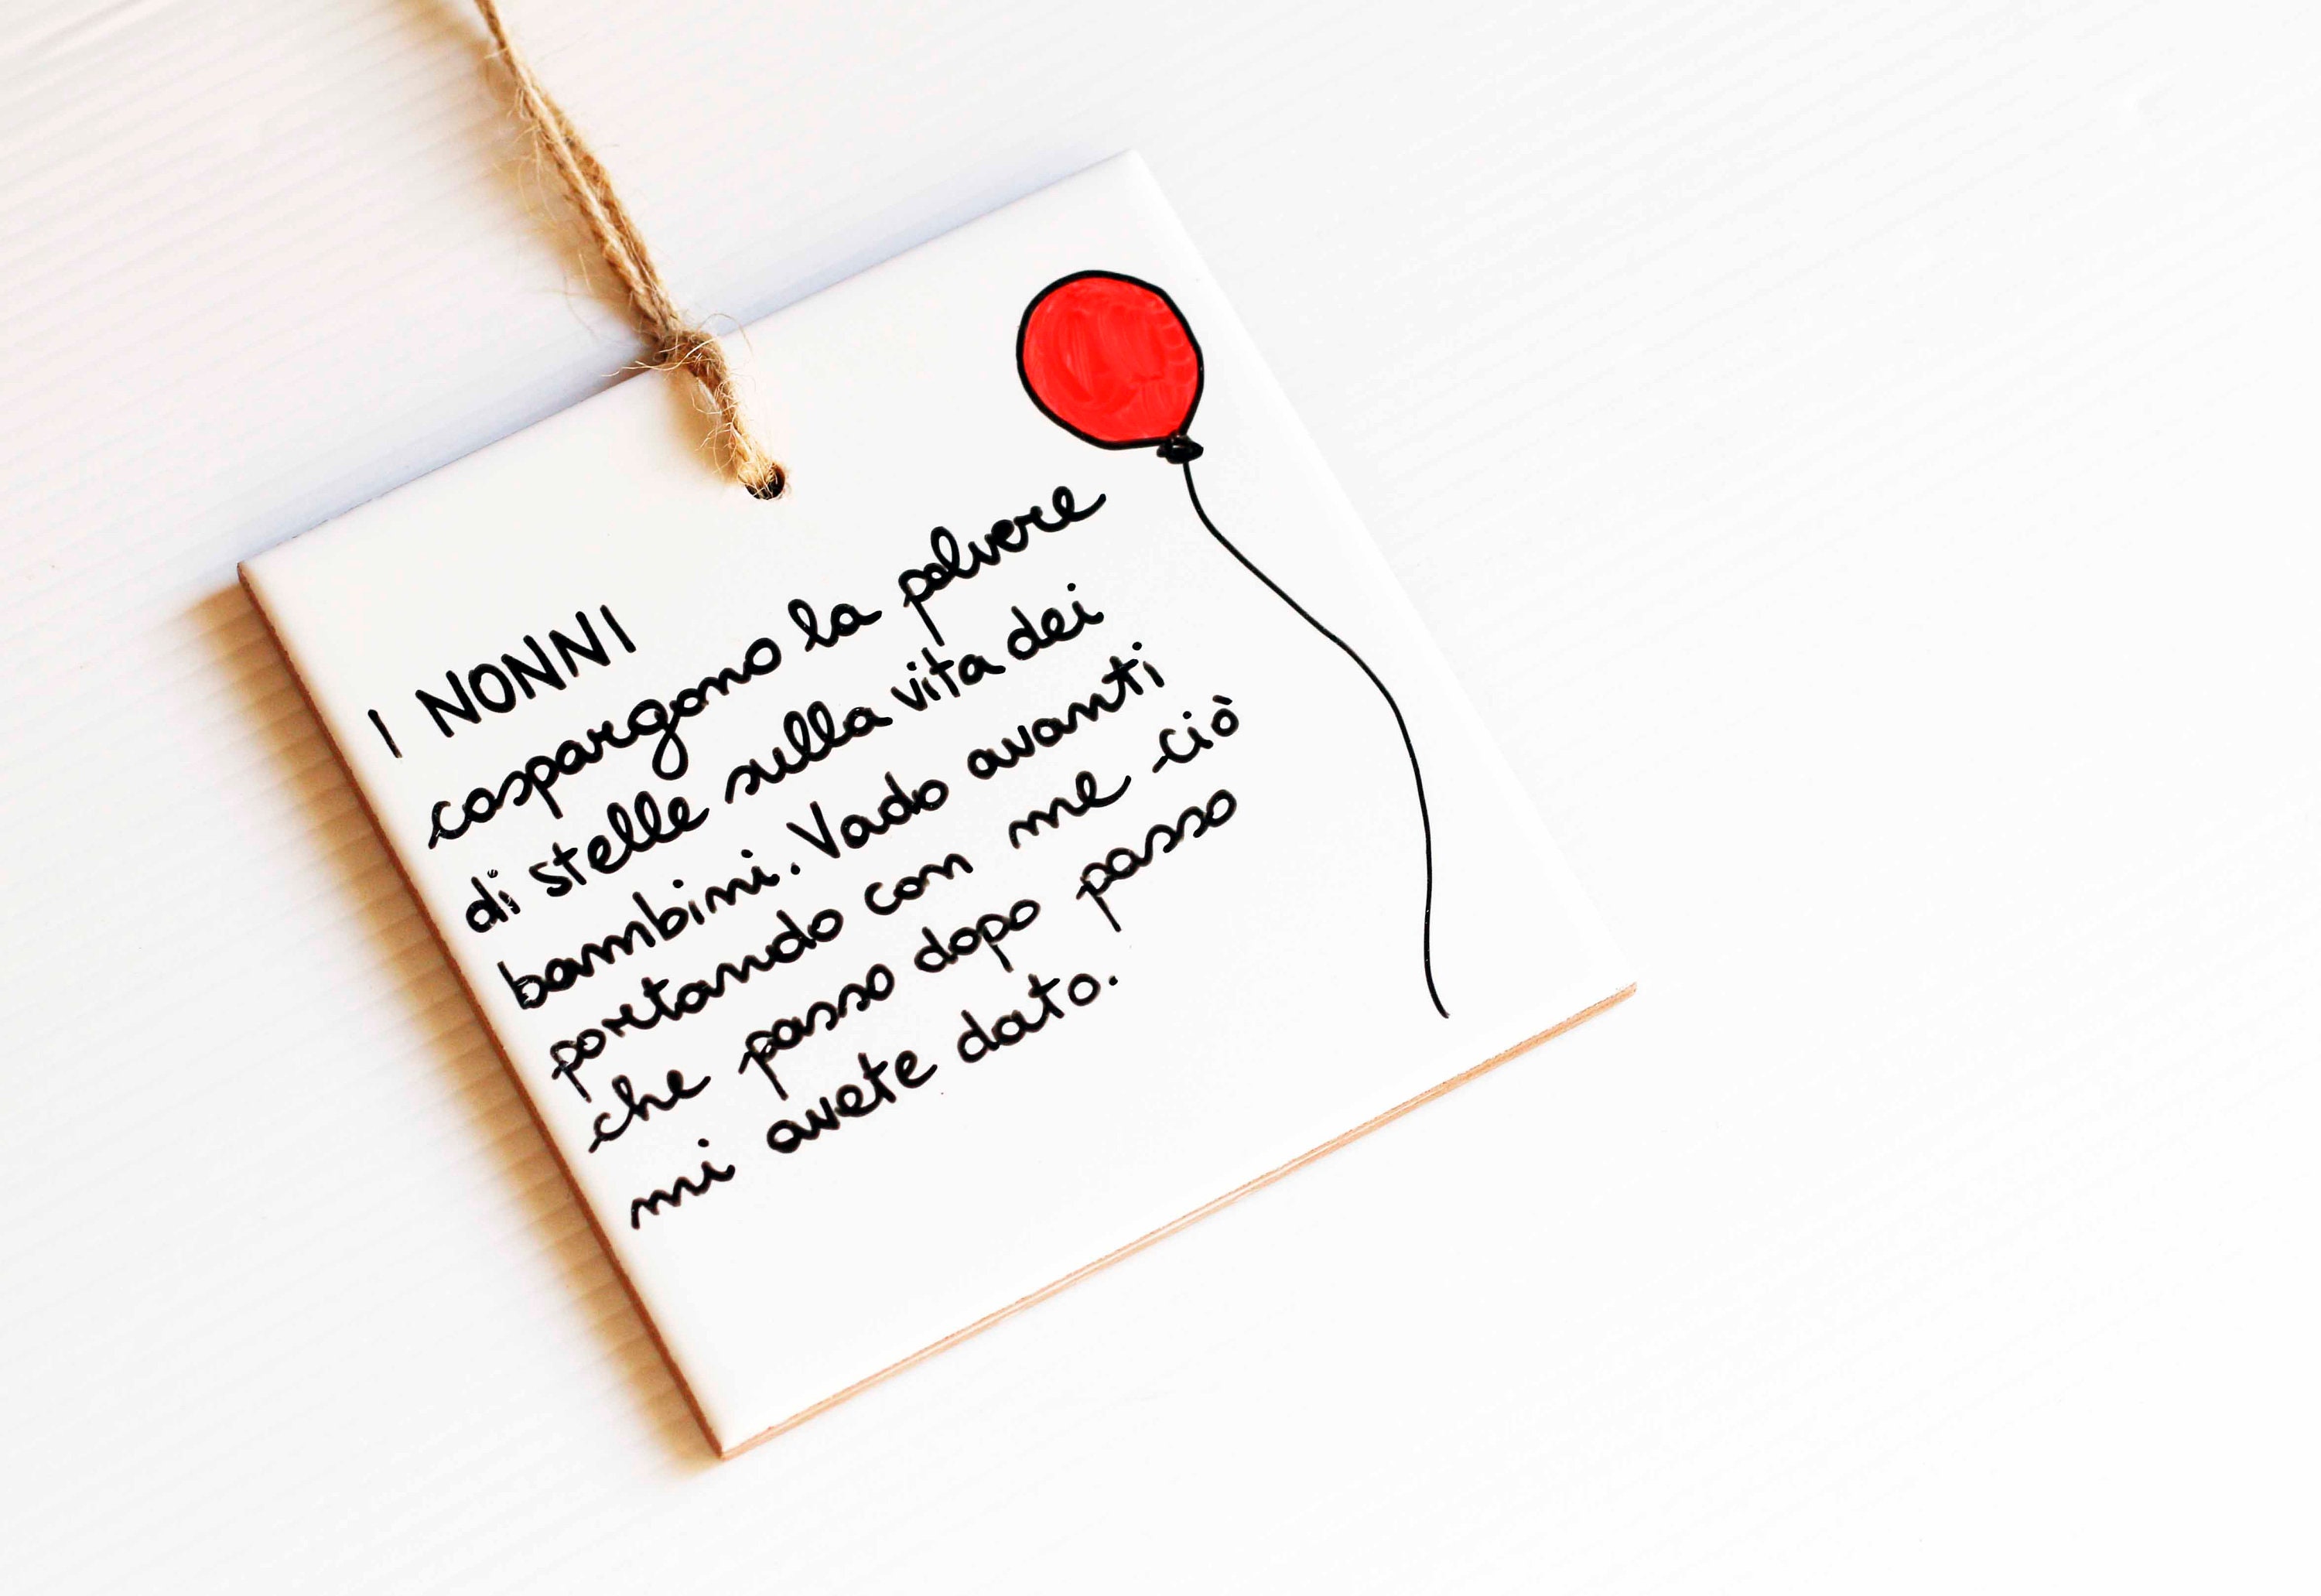 I NONNI
cospargono la polvere
di stelle sulla vita dei
bambini. Vado avanti
portando con me ciò
che passo dopo passo
mi avete dato.